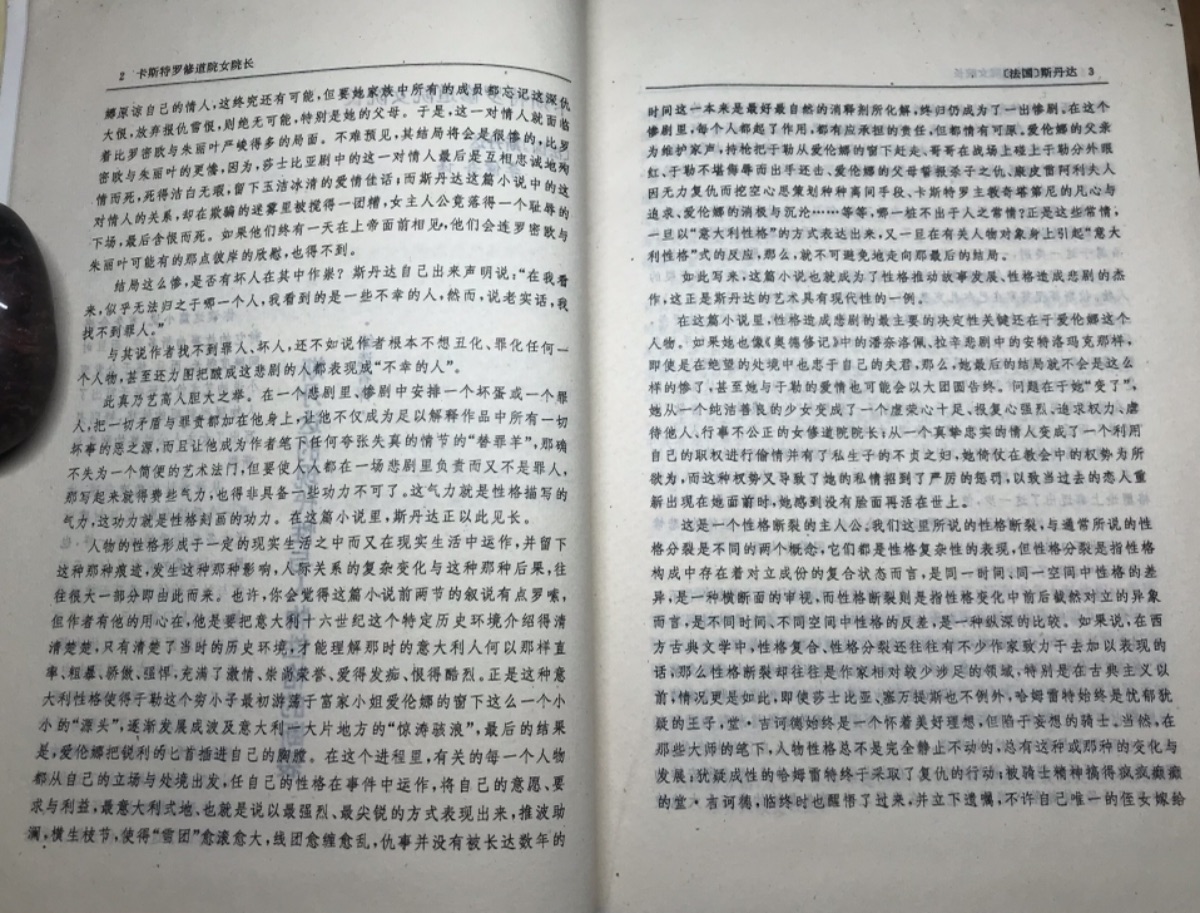 2 卡斯特罗修道院女院长
娜原谅自己的情人，这终究还有可能，但要她家族中所有的成员都忘记这深仇
大恨，放弃报仇雪恨，则绝无可能，特别是她的父母。于是，这一对情人就面临
着比罗密欧与朱丽叶严峻得多的局面。不难预见，其结局将会是很惨的，比罗
密欧与朱丽叶的更惨，因为，莎士比亚剧中的这一对情人最后是互相忠诚地殉
情而死，死得洁白无瑕，留下玉洁冰清的爱情佳话；而斯丹达这篇小说中的这
对情人的关系，却在欺骗的迷雾里被搅得一团糟，女主人公竟落得一个耻辱的
下场，最后含恨而死。如果他们终有一天在上帝面前相见，他们会连罗密欧与
朱丽叶可能有的那点彼岸的欣慰，也得不到。
结局这么惨，是否有坏人在其中作祟？斯丹达自己出来声明说：“在我看
来，似乎无法归之于哪一个人，我看到的是一些不幸的人，然而，说老实话，我
找不到罪人。”
与其说作者找不到罪人、坏人，还不如说作者根本不想丑化、罪化任何一
个人物，甚至还力图把酿成这悲剧的人都表现成“不幸的人”。
此真乃艺高人胆大之举。在一个悲剧里、惨剧中安排一个坏蛋或一个罪
人，把一切矛盾与罪责都加在他身上，让他不仅成为足以解释作品中所有一切
坏事的恶之源，而且让他成为作者笔下任何夸张失真的情节的“替罪羊”，那确
不失为一个简便的艺术法门，但要使人人都在一场悲剧里负责而又不是罪人，
那写起来就得费些气力，也得非具备一些功力不可了。这气力就是性格描写的
气力，这功力就是性格刻画的功力。在这篇小说里，斯丹达正以此见长。
人物的性格形成于一定的现实生活之中而又在现实生活中运作，并留下
这种那种痕迹，发生这种那种影响，人际关系的复杂变化与这种那种后果，往
往很大一部分即由此而来。也许，你会觉得这篇小说前两节的叙说有点罗嗦，
但作者有他的用心在，他是要把意大利十六世纪这个特定历史环境介绍得清
清楚楚，只有清楚了当时的历史环境，才能理解那时的意大利人何以那样直
率、粗暴、骄傲、强悍，充满了激情、崇尚荣誉、爱得发痴、恨得酷烈。正是这种意
大利性格使得于勒这个穷小子最初游荡于富家小姐爱伦娜的窗下这么一个小
小的“源头”，逐渐发展成波及意大利一大片地方的“惊涛骇浪”，最后的结果
是，爱伦娜把锐利的匕首插进自己的胸膛。在这个进程里，有关的每一个人物
都从自己的立场与处境出发，任自己的性格在事件中运作，将自己的意愿、要
求与利益，最意大利式地、也就是说以最强烈、最尖锐的方式表现出来，推波助
澜，横生枝节，使得“雪团”愈滚愈大，线团愈缠愈乱，仇事并没有被长达数年的
〔法国〕斯丹达 3
时间这一本来是最好最自然的消释剂所化解，终归仍成为了一出惨剧。在这个
惨剧里，每个人都起了作用，都有应承担的责任，但都情有可原。爱伦娜的父亲
为维护家声，持枪把于勒从爱伦娜的窗下赶走、哥哥在战场上碰上于勒分外眼
红、于勒不堪侮辱而出手还击、爱伦娜的父母誓报杀子之仇、康皮雷阿利夫人
因无力复仇而挖空心思策划种种离间手段、卡斯特罗主教奇塔第尼的凡心与
追求、爱伦娜的消极与沉沦……等等，哪一桩不出于人之常情？正是这些常情，
一旦以“意大利性格”的方式表达出来，又一旦在有关人物对象身上引起“意大
利性格”式的反应，那么，就不可避免地走向那最后的结局。
如此写来，这篇小说也就成为了性格推动故事发展、性格造成悲剧的杰
作，这正是斯丹达的艺术具有现代性的一例。
在这篇小说里，性格造成悲剧的最主要的决定性关键还在于爱伦娜这个
人物。如果她也像《奥德修记》中的潘奈洛佩、拉辛悲剧中的安特洛玛克那样，
即使是在绝望的处境中也忠于自己的夫君，那么，她最后的结局就不会是这么
样的惨了，甚至她与于勒的爱情也可能会以大团圆告终。问题在于她“变了”，
她从一个纯洁善良的少女变成了一个虚荣心十足、报复心强烈、追求权力、虐
待他人、行事不公正的女修道院院长；从一个真挚忠实的情人变成了一个利用
自己的职权进行偷情并有了私生子的不贞之妇，她倚仗在教会中的权势为所
欲为，而这种权势又导致了她的私情招到了严厉的惩罚，以致当过去的恋人重
新出现在她面前时，她感到没有脸面再活在世上。
这是一个性格断裂的主人公；我们这里所说的性格断裂，与通常所说的性
格分裂是不同的两个概念，它们都是性格复杂性的表现，但性格分裂是指性格
构成中存在着对立成份的复合状态而言，是同一时间、同一空间中性格的差
异，是一种横断面的审视，而性格断裂则是指性格变化中前后截然对立的异象
而言，是不同时间、不同空间中性格的反差，是一种纵深的比较。如果说，在西
方古典文学中，性格复合、性格分裂还往往有不少作家致力于去加以表现的
话，那么性格断裂却往往是作家相对较少涉足的领域，特别是在古典主义以
前，情况更是如此，即使莎士比亚、塞万提斯也不例外，哈姆雷特始终是忧郁犹
疑的王子，堂·吉诃德始终是一个怀着美好理想，但陷于妄想的骑士。当然，在
那些大师的笔下，人物性格总不是完全静止不动的，总有这种或那种的变化与
发展；犹疑成性的哈姆雷特终于采取了复仇的行动；被骑士精神搞得疯疯癫癫
的堂·吉诃德，临终时也醒悟了过来，并立下遗嘱，不许自己唯一的侄女嫁给